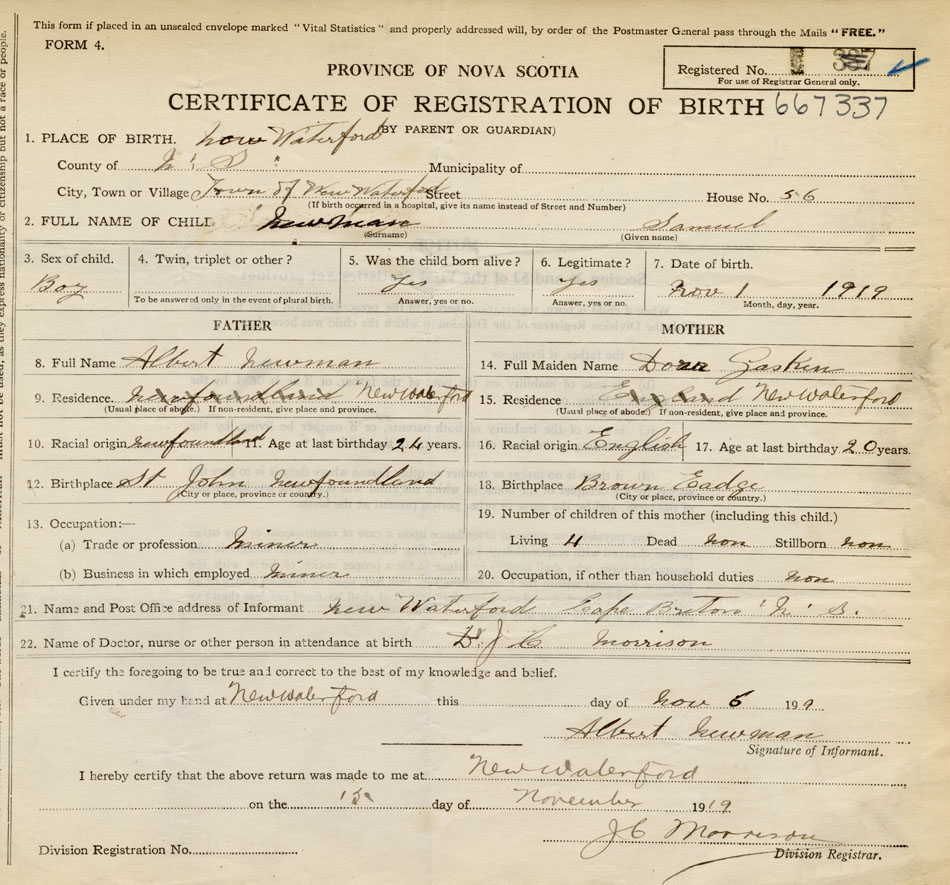 This form if placed in an unsealed envelope marked "Vital Statistics" and properly addressed will, by order of the Postmaster General pass through the Mails "FREE."
FORM 4.
Registered No. 337
For use of Registrar General only.
PROVINCE OF NOVA SCOTIA
CERTIFICATE OF REGISTRATION OF BIRTH 667337
(BY PARENT OR GUARDIAN)
1. PLACE OF BIRTH. New Waterford
County of N. S. Municipality of
City, Town or Village Town of New Waterford Street House No. 56
(If birth occurred in a hospital, give its name instead of Street and Number)
2. FULL NAME OF CHILD Newman Samuel
(Surname) (Given name)
3. Sex of child. 4. Twin, triplet or other? 5. Was the child born alive? 6. Legitimate? 7. Date of birth.
Boy Yes Yes Nov 1 1919
To be answered only in the event of plural birth. Answer, yes or no. Answer, yes or no. Month, day, year.
FATHER
8. Full Name Albert Newman
9. Residence. Newfoundland New Waterford
(Usual place of abode.) If non-resident, give place and province.
10. Racial origin Newfoundland 11. Age at last birthday 24 years.
12. Birthplace St John Newfoundland
(City or place, province or country.)
13. Occupation:—
(a) Trade or profession Miner
(b) Business in which employed Miner
MOTHER
14. Full Maiden Name Dora Gaskin
15. Residence England New Waterford
(Usual place of abode.) If non-resident, give place and province.
16. Racial origin English 17. Age at last birthday 20 years.
18. Birthplace Brown Eadge
(City or place, province or country.)
19. Number of children of this mother (including this child.)
Living 4 Dead non Stillborn non
20. Occupation, if other than household duties non
21. Name and Post Office address of Informant New Waterford Cape Briton N. S.
22. Name of Doctor, nurse or other person in attendance at birth Dr J C Morrison
I certify the foregoing to be true and correct to the best of my knowledge and belief.
Given under my hand at New Waterford this day of Nov 6 191
Albert Newman
Signature of Informant.
I hereby certify that the above return was made to me at New Waterford
on the 15 day of November 1919
J C Morrison
Division Registrar.
Division Registration No.